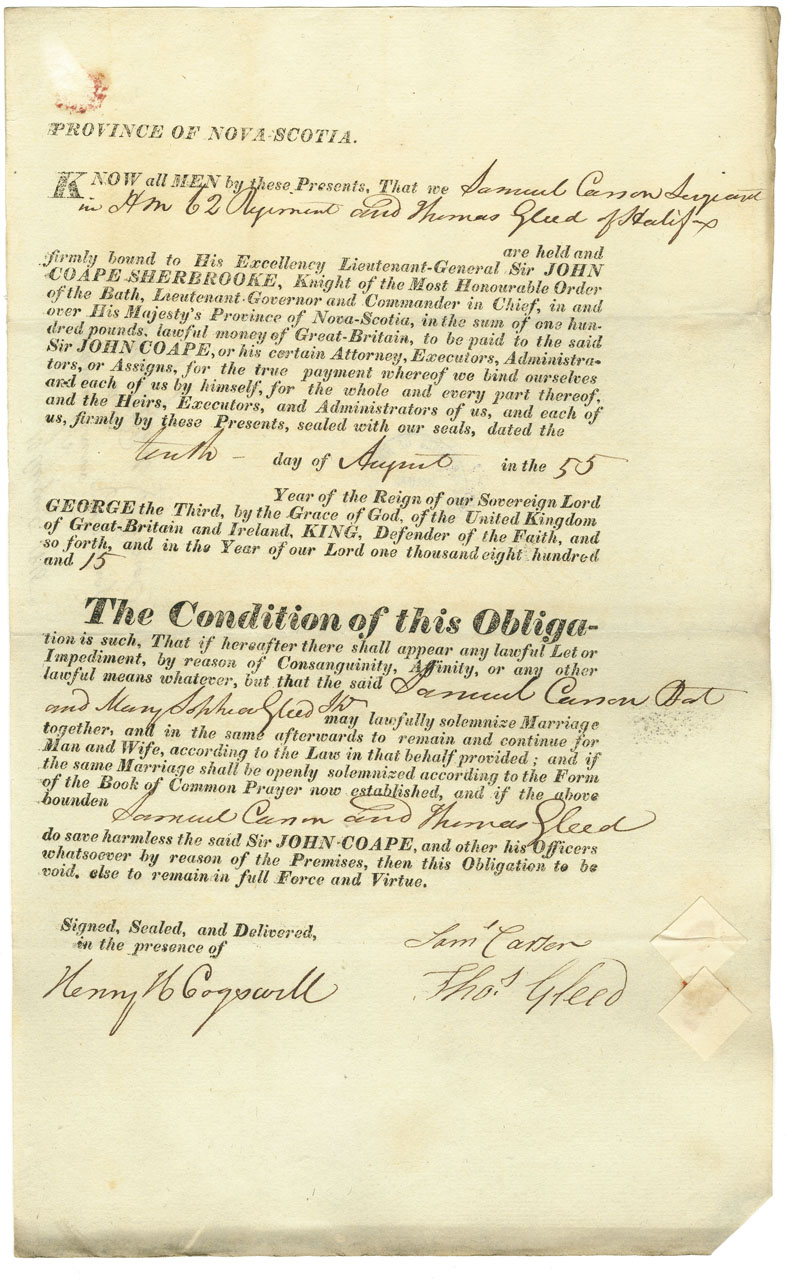 PROVINCE OF NOVA-SCOTIA.
KNOW all MEN by these Presents, That we Samuel Carson Serjeant
in HM 62 Regiment and Thomas Gleed of Halifax
are held and
firmly bound to His Excellency Lieutenant-General Sir JOHN
COAPE SHERBROOKE, Knight of the Most Honourable Order
of the Bath, Lieutenant-Governor and Commander in Chief, in and
over His Majesty's Province of Nova-Scotia, in the sum of one hun-
dred pounds, lawful money of Great-Britain, to be paid to the said
Sir JOHN COAPE, or his certain Attorney, Executors, Administra-
tors, or Assigns, for the true payment whereof we bind ourselves
and each of us by himself, for the whole and every part thereof,
and the Heirs, Executors, and Administrators of us, and each of
us, firmly by these Presents, sealed with our seals, dated the
tenth - day of August in the 55
Year of the Reign of our Sovereign Lord
GEORGE the Third, by the Grace of God, of the United Kingdom
of Great-Britain and Ireland, KING, Defender of the Faith, and
so forth, and in the Year of our Lord one thousand eight hundred
and 15
The Condition of this Obliga-
tion is such, That if hereafter there shall appear any lawful Let or
Impediment, by reason of Consanguinity, Affinity, or any other
lawful means whatever, but that the said Samuel Carson Bat
and Mary Sophia Gleed Spr
may lawfully solemnize Marriage
together, and in the same afterwards to remain and continue for
Man and Wife, according to the Law in that behalf provided; and if
the same Marriage shall be openly solemnized according to the Form
of the Book of Common Prayer now established, and if the above
bounden Samuel Carson and Thomas Gleed
do save harmless the said Sir JOHN-COAPE, and other his Officers
whatsoever by reason of the Premises, then this Obligation to be
void, else to remain in full Force and Virtue.
Signed, Sealed, and Delivered,
in the presence of
Saml Carson
Henry H Cogswell
Thos Gleed